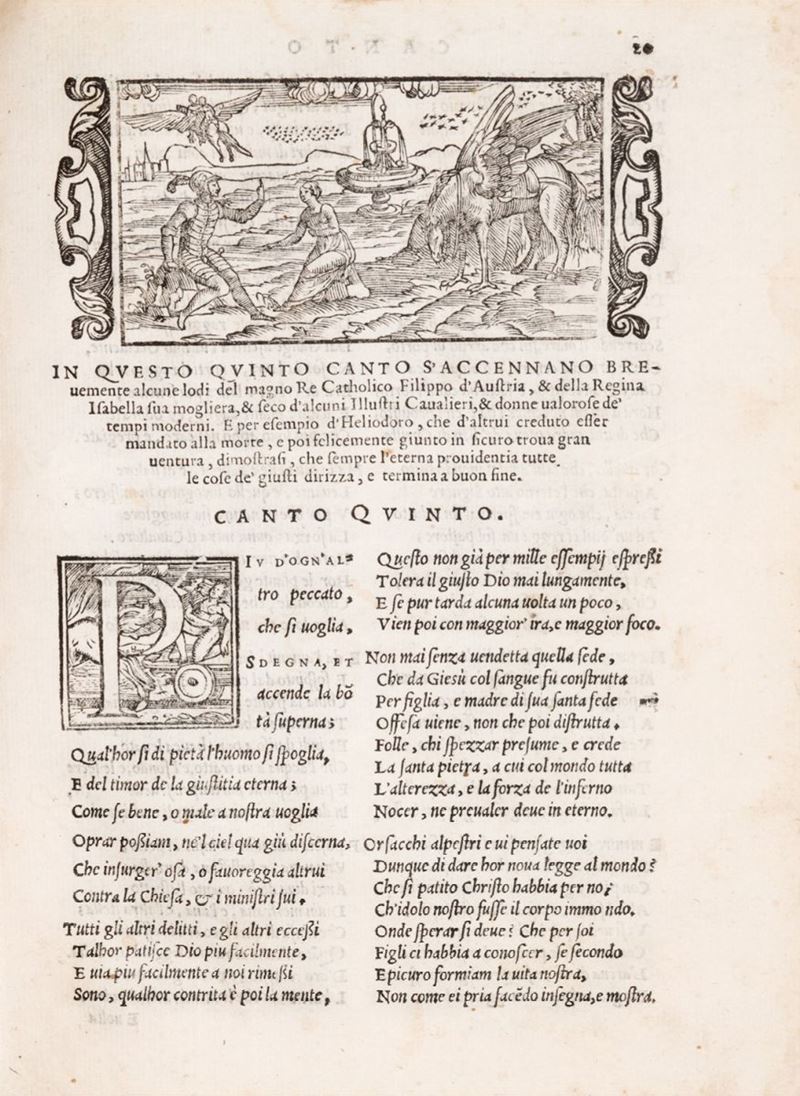 20
IN QVESTO QVINTO CANTO S'ACCENNANO BRE-
uemente alcune lodi del magno Re Catholico Filippo d'Auſtria, & della Regina
Iſabella ſua mogliera, & ſeco d'alcuni Illuſtri Caualieri, & donne ualoroſe de'
tempi moderni. E per eſempio d'Heliodoro, che d'altrui creduto eſſer
mandato alla morte, e poi felicemente giunto in ſicuro troua gran
uentura, dimoſtraſi, che ſempre l'eterna prouidentia tutte
le coſe de' giuſti dirizza, e termina a buon fine.
CANTO QVINTO.
PIV D'OGN'AL-
tro peccato,
che ſi uoglia,
SDEGNA, ET
accende la bõ
tà ſuperna;
Qual'hor ſi di pietà l'huomo ſi ſpoglia,
E del timor de la giuſtitia eterna;
Come ſe bene, o male a noſtra uoglia
Oprar poſſiam, ne'l ciel qua giù diſcerna,
Che inſurger' oſa, o fauoreggia altrui
Contra la Chieſa, & i miniſtri ſui.
Tutti gli altri delitti, e gli altri ecceſſi
Talhor patiſce Dio piu facilmente,
E uia piu facilmente a noi rimeſſi
Sono, qualhor contrita è poi la mente,
Queſto non già per mille eſſempij eſpreſſi
Tolera il giuſto Dio mai lungamente,
E ſe pur tarda alcuna uolta un poco,
Vien poi con maggior' ira, e maggior foco.
Non mai ſenza uendetta quella ſede,
Che da Gieſù col ſangue fù conſtrutta
Per figlia, e madre di ſua ſanta fede
Offeſa uiene, non che poi diſtrutta.
Folle, chi ſpezzar preſume, e crede
La ſanta pietra, a cui col mondo tutta
L'alterezza, e la forza de l'inferno
Nocer, ne preualer deue in eterno.
Or ſacchi alpeſtri e ui penſate uoi
Dunque di dare hor noua legge al mondo?
Che ſi patito Chriſto habbia per noi
Ch'idolo noſtro fuſſe il corpo immondo.
Onde ſperar ſi deue? Che per ſoi
Figli ci habbia a conoſcer, ſe ſecondo
Epicuro formiam la uita noſtra,
Non come ei pria facẽdo inſegna, e moſtra.